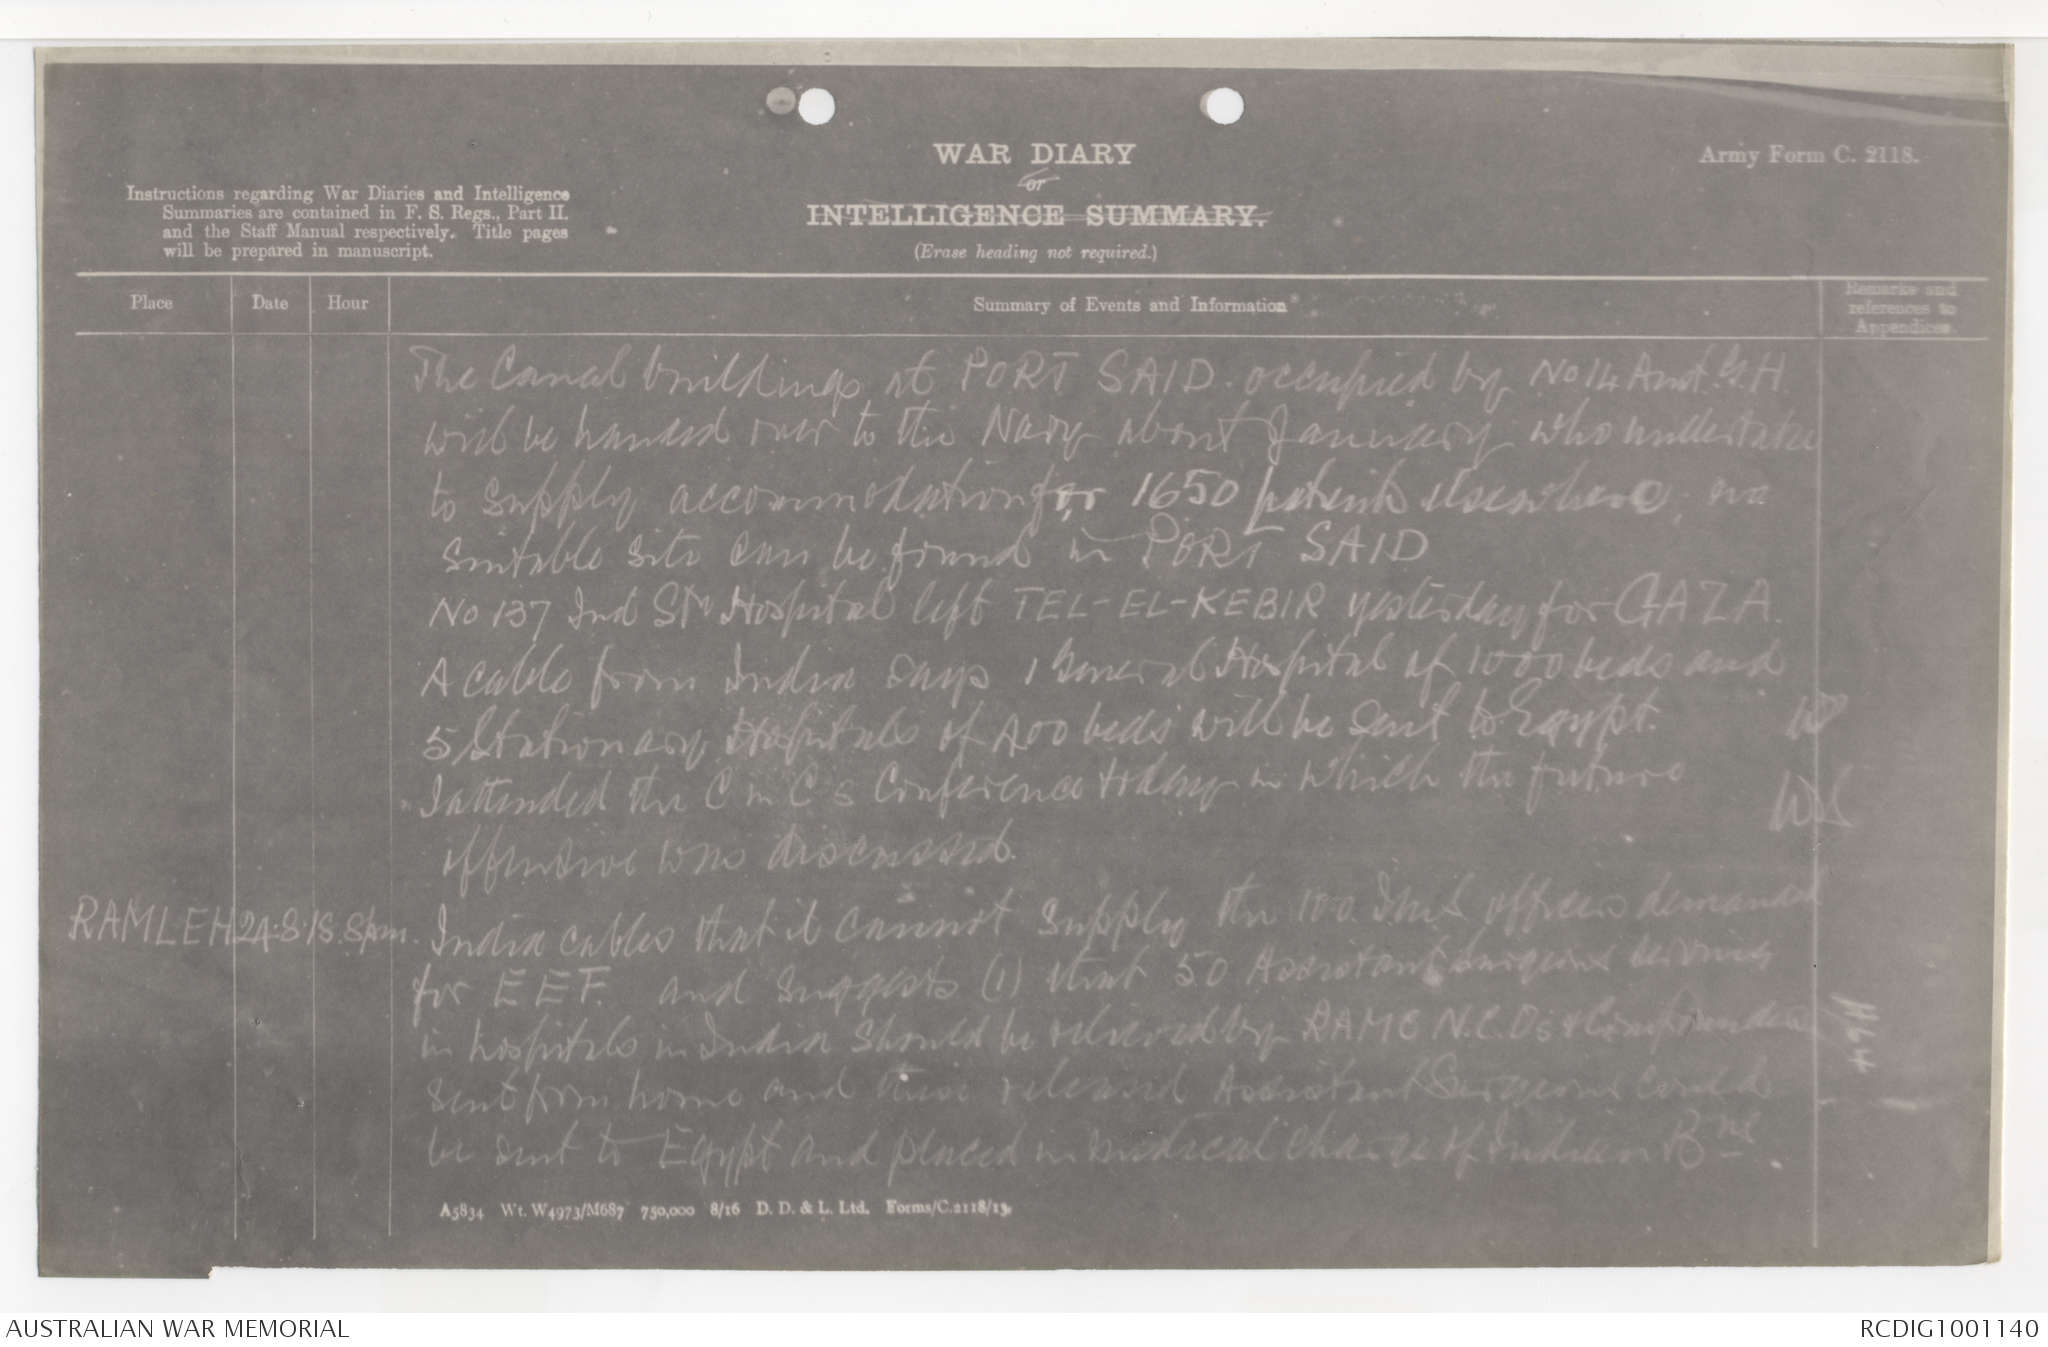 WAR DIARY
or
INTELLIGENCE SUMMARY.
(Erase heading not required.)
Army Form C. 2118.
Instructions regarding War Diaries and Intelligence
Summaries are contained in F. S. Regs., Part II.
and the Staff Manual respectively. Title pages
will be prepared in manuscript.
Place Date Hour Summary of Events and Information Remarks and
references to
Appendices.
The Canal buildings at PORT SAID occupied by No 14 Aust. G. H
will be handed over to the Navy about January who undertake
to supply accommodation for 1650 patients elsewhere, no
suitable site can be found in PORT SAID
No 137 Ind Sty Hospital left TEL-EL-KEBIR yesterday for GAZA.
A cable from India says 1 General Hospital of 1000 beds and
5 Stationary Hospitals of 400 beds will be sent to Egypt.
I attended the C in C's Conference today in which the future
offensive was discussed.
RAMLEH 24.8.18. 8pm. India cables that it cannot supply the 100 officers demanded
for E E F. and suggests (1) that 50 Assistant Surgeons serving
in hospitals in India should be relieved by RAMC N.C.Os & Compounders
sent from home and these released Assistant Surgeons could
be sent to Egypt and placed in medical charge of Indian Bns
A5834 Wt. W4973/M687 750,000 8/16 D. D. & L. Ltd. Forms/C.2118/13.
AUSTRALIAN WAR MEMORIAL RCDIG1001140